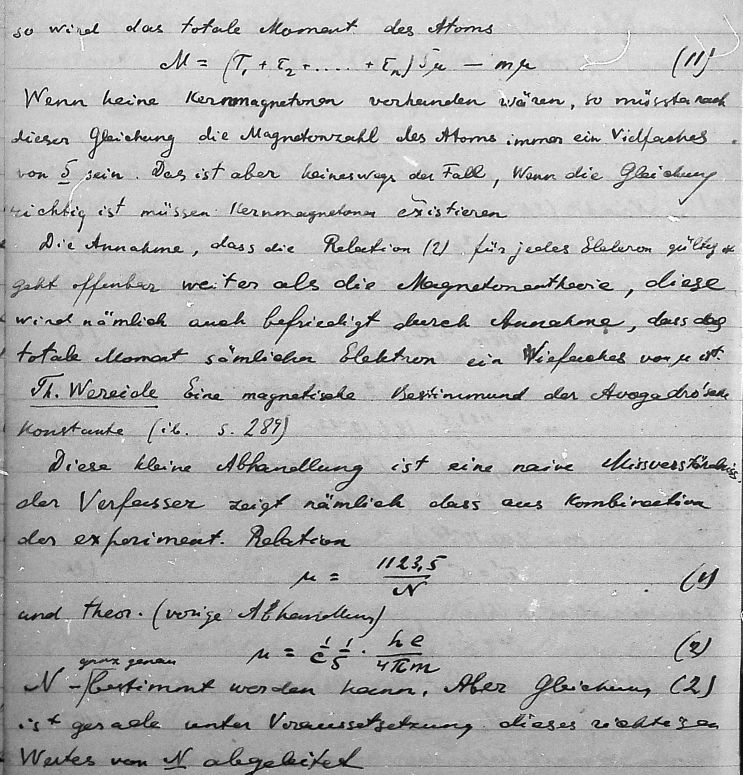 so wird das totale Moment des Atoms
M = (τ₁ + τ₂ + ..... + τₙ) 5μ – mμ (11)
Wenn keine Kernmagnetonen vorhanden wären, so müsste nach
dieser Gleichung die Magnetonzahl des Atoms immer ein Vielfaches
von 5 sein. Das ist aber keineswegs der Fall, Wenn die Gleichung
richtig ist müssen Kernmagnetonen existieren
Die Annahme, dass die Relation (2) für jedes Elektron gültig ist
geht offenbar weiter als die Magnetontheorie, diese
wird nämlich auch befriedigt durch Annahme, dass das
totale Moment sämlicher Elektron ein Vielfaches von μ ist.
Th. Wereide Eine magnetische Bestimmund der Avogadró'schen
Konstante (ib. s. 289)
Diese kleine Abhandlung ist eine naive Missverständniss,
der Verfasser zeigt nämlich dass aus Kombination
der experiment. Relation
μ = 1123,5 / N (1)
und theor. (vorige Abhandlung)
μ = 1/c 1/5 · he / 4πm (2)
ganz genau
N – bestimmt werden kann. Aber Gleichung (2)
ist gerade unter Voraussetsetzung dieses richtigen
Wertes von N abgeleitet